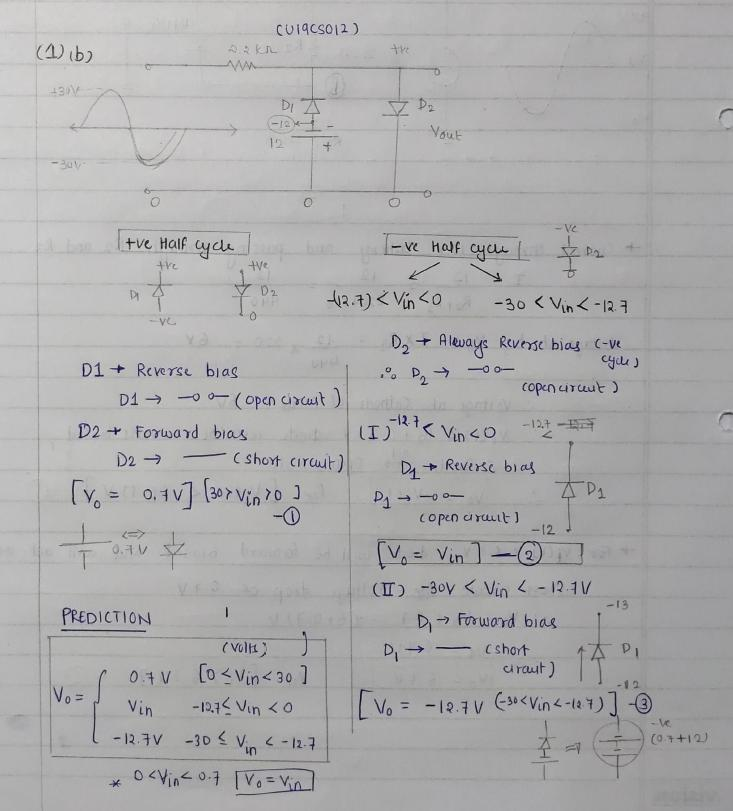 (U19CS012)
(1)(b)
2.2 kΩ
+ve
+30V
-30V
D1
-12
12
-
+
D2
Vout
0 0 0
+ve Half cycle
+ve
D1
-ve
+ve
D2
0
D1 → Reverse bias
D1 → (open circuit)
D2 → Forward bias
D2 → (short circuit)
[Vo = 0.7V] [30>Vin>0]
-①
⇔
0.7V
PREDICTION
(volts)
Vo = { 0.7V [0≤Vin<30]
Vin -12.7≤Vin<0
-12.7V -30≤Vin<-12.7
* 0<Vin<0.7 [Vo=Vin]
-ve Half cycle
-ve
D2
-(12.7)<Vin<0
-30<Vin<-12.7
D2 → Always Reverse bias (-ve cycle)
∴ D2 → (open circuit)
(I) -12.7<Vin<0
-12.7 <
D1 → Reverse bias
D1 → (open circuit)
D1
-12
[Vo = Vin] -②
(II) -30V < Vin < -12.7V
D1 → Forward bias
D1 → (short circuit)
-13
D1
-12
[Vo = -12.7V (-30<Vin<-12.7)] -③
⇒
-ve
(0.7+12)